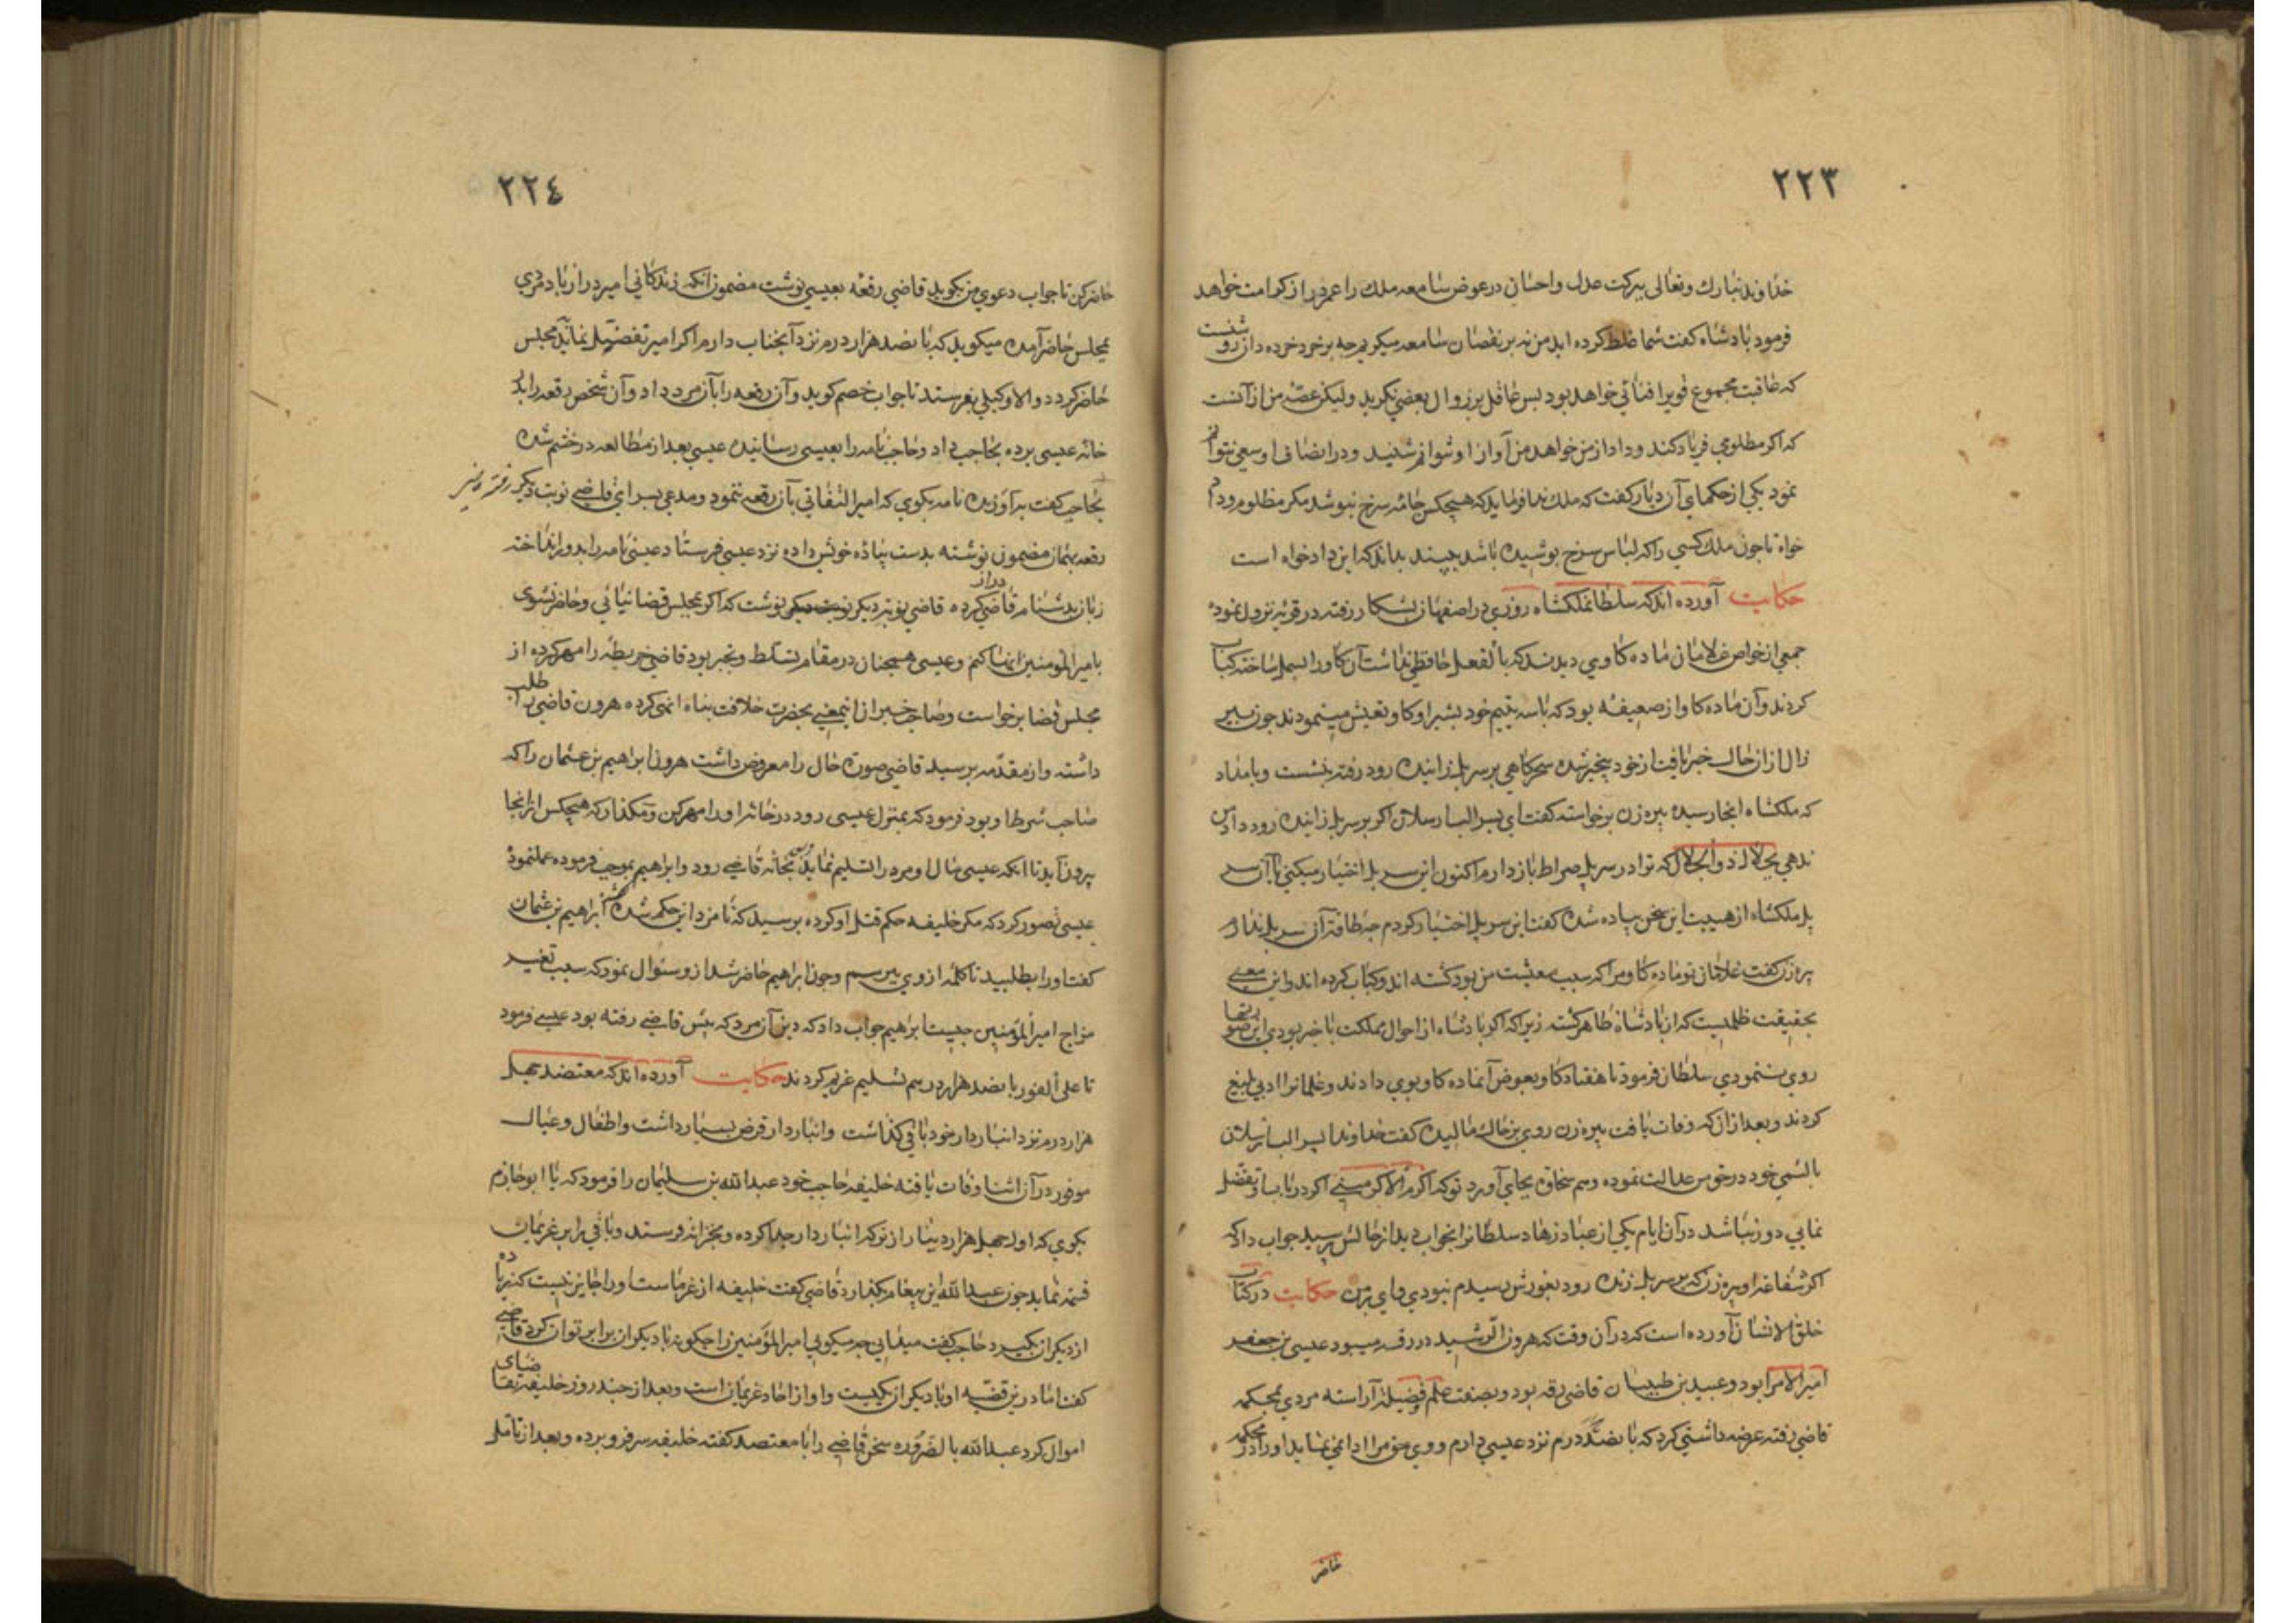 ۲۲۳
خداوند تبارك وتعالى ببركت عدل واحسان در عوض سامعه ملك را عمر دراز كرامت خواهد
فرمود بادشاه كفت شما غلط كرده ايد من نه بر نقصان سامعه ميكريم چه بر خرد خرده دان روشنست
كه عاقبت مجموع قوى را فنائى خواهد بود بس عاقل بر زوال بعضى نكريد وليكن غصه من از آنست
كه اكر مظلومي فرياد كند وداد از من خواهد من آواز او نتوانم شنيد ودر انصاف او سعي نتوانم
نمود يكى از حكماى آن ديار كفت كه ملك ندا فرمايد كه هيچكس جامه سرخ نبوشد مكر مظلوم وداد
خواه تا چون ملك كسي را كه لباس سرخ بوشيده باشد ببيند بداند كه اين داد خواه است
حكايت آورده اند كه سلطان ملكشاه روزي در اصفهان بشكار رفته در قريه نزول نموده
جمعي از خواص غلامان ماده كاوي ديدند كه بالفعل حافظي نداشت آن كاو را بسمل ساخته كباب
كردند وآن ماده كاو از ضعيفه بود كه با سه يتيم خود بشير او كاو تعيش مينمودند چون بير
زال از آن حال خبر يافت از خود بيخبر شده سحركاهي بر سر بل زاينده رود رفته بنشست وبامداد
كه ملكشاه انجا رسيد بيره زن برخواسته كفت اي بسر الب ارسلان اكر بر سر بل زاينده رود داد من
ندهي بجلال ذو الجلال كه ترا در سر بل صراط باز دارم اكنون اين سر بل اختيار ميكني يا آن سر
پل ملكشاه از هيبت اين سخن پياده شده كفت اين سر پل اختيار كردم چه طاقت آن سر پل ندارم
پيرزن كفت غلامان تو ماده كاو مرا كه سبب معيشت من بود كشته اند وكباب كرده اند واين معنى
بحقيقت ظلميست كه از بادشاه ظاهر كشته زيرا كه اكر بادشاه از احوال مملكت باخبر بودي اين صورتها
روي ننمودي سلطان فرمود تا هفتاد كاو بعوض آنماده كاو بوي دادند وغلمانرا ادبي بليغ
كردند وبعد از آن كه وفات يافت بيره زن روي بر خاك ماليده كفت خداوندا پسر الب ارسلان
با لئيمى خود در حق من عدالت نموده رسم سخاوت بجاى آورد تو كه اكرم الاكرمينى اكر در باب او تفضل
نمايي دور نباشد در آن ايام يكي از عباد زهاد سلطانرا بخواب ديد از حالش پرسيد جواب داد كه
اكر شفاعت او پيرزن كه بر سر بل زنده رود بغورش رسيدم نبودي واي بر من حكايت در كتاب
خلق الانسان آورده است كه در آن وقت كه هرون الرشيد در رقه ميبود عيسى بن جعفر
امير الامرا بود وعبيد بن ظبيان قاضى رقه بود وبصفت علم وفضيلة آراسته مردي بمحكمه
قاضي رفته عرضه داشتي كرد كه بانصد درم نزد عيسي دارم ووي حق مرا ادا نمي نمايد او را در محكمه
حاضر
۲۲٤
حاضر كن تا جواب دعوي من بكويد قاضي رقعه بعيسي نوشت مضمون انكه زندكاني امير دراز باد مردي
بمجلس حاضر آمده ميكويد كه بانصد هزار درم نزد آنجناب دارم اكر امير تفضل نمايد بمجلس
حاضر كردد والا وكيلي بفرستد تا جواب خصم كويد وآن رقعه را بآن مرد داد وآن شخص رقعه را بدر
خانه عيسى برده بحاجب داد وحاجب نامه را بعيسى رسانيده عيسى بعد از مطالعه در خشم شده
بحاجب كفت بر آورنده نامه بكوي كه امير التفاتي بآن رقعه ننمود ومدعي بسراي قاضى نوبت ديكر رفته ونيز
رقعه بهمان مضمون نوشته بدست پياده خويش داده نزد عيسي فرستاد عيسى نامه را بدور انداخته
زبان بدشنام قاضي دراز كرده قاضي نوبت ديكر نوشت كه اكر بمجلس قضا نيائي وحاضر نشوى
با امير المؤمنين انها كنم وعيسى همچنان در مقام تسلط وتجبر بود قاضى خريطه را مهر كرده از
مجلس قضا برخواست وصاحب خبر از اين معنى بحضرت خلافت پناه انهى كرده هرون قاضى را طلب
داشته واز مقدمه پرسيد قاضي صورة حال را معروض داشت هرون ابراهيم بن عثمان را كه
صاحب شرطه او بود فرمود كه بمنزل عيسى رود در خانه او را مهر كن ومكذار كه هيچكس از انجا
بيرون آيد تا انكه عيسى مال او مرد را تسليم نمايد وبخانه قاضى رود وابراهيم بموجب فرموده عمل نموده
عيسى تصور كرد كه مكر خليفه حكم قتل او كرده پرسيد كه نامزد اين حكم شده كفتند ابراهيم بن عثمان
كفت او را بطلبيد تا كلمه از وي بپرسم وچون ابراهيم حاضر شد از و سئوال نمود كه سبب تغير
مزاج امير المؤمنين چيست ابراهيم جواب داد كه دين آن مرد كه پيش قاضى رفته بود عيسى فرمود
تا على الفور بانصد هزار درهم تسليم غريم كردند حكايت آورده اند كه معتضد چهل
هزار درم نزد انباردار خود باقي كذاشت وانباردار قرض بسيار داشت واطفال وعيال
موفور در آن اثنا وفات يافته خليفه حاجب خود عبد الله بن سليمان را فرمود كه با ابو حازم
بكوي كه اول چهل هزار دينار از تركه انباردار جدا كرده وبخزانه فرستد وباقي را بر غريمان
قسمة نمايد چون عبد الله اين پيغام بكذارد قاضي كفت خليفه از غرماست او را جايز نيست كه زياده
از ديكران بكيرد حاجب كفت ميداني چه ميكويي امير المؤمنين را چكونه با ديكران برابر توان كرد قاضى
كفت اما درين قضيه او با ديكران يكيست واو از احاد غريمان است وبعد از چند روز خليفه تقاضاى
اموال كرد عبد الله بالضروره سخن قاضى را با معتضد كفته خليفه سر فرو برده وبعد از تامل